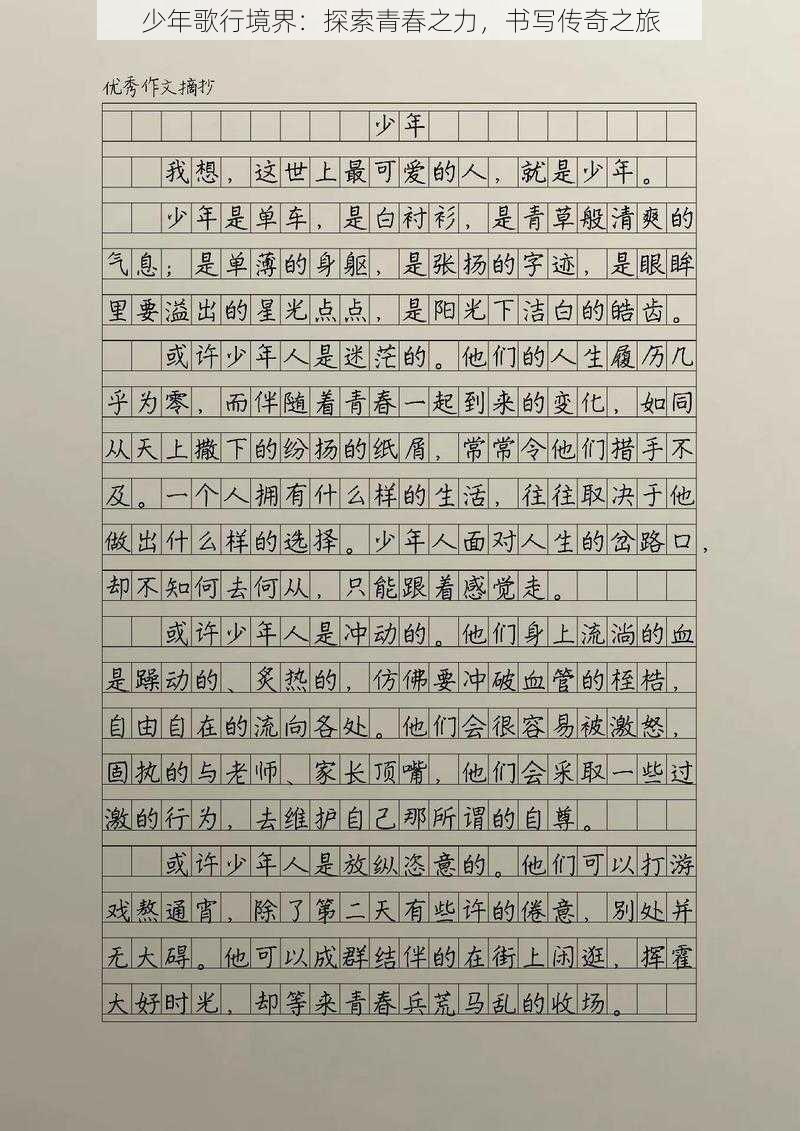 少年歌行境界：探索青春之力，书写传奇之旅
优秀作文摘抄
少年
我想，这世上最可爱的人，就是少年。
少年是单车，是白衬衫，是青草般清爽的
气息；是单薄的身躯，是张扬的字迹，是眼眸
里要溢出的星光点点，是阳光下洁白的皓齿。
或许少年人是迷茫的。他们的人生履历几
乎为零，而伴随着青春一起到来的变化，如同
从天上撒下的纷扬的纸屑，常常令他们措手不
及。一个人拥有什么样的生活，往往取决于他
做出什么样的选择。少年人面对人生的岔路口，
却不知何去何从，只能跟着感觉走。
或许少年人是冲动的。他们身上流淌的血
是躁动的、炙热的，仿佛要冲破血管的桎梏，
自由自在的流向各处。他们会很容易被激怒，
固执的与老师、家长顶嘴，他们会采取一些过
激的行为，去维护自己那所谓的自尊。
或许少年人是放纵恣意的。他们可以打游
戏熬通宵，除了第二天有些许的倦意，别处并
无大碍。他可以成群结伴的在街上闲逛，挥霍
大好时光，却等来青春兵荒马乱的收场。